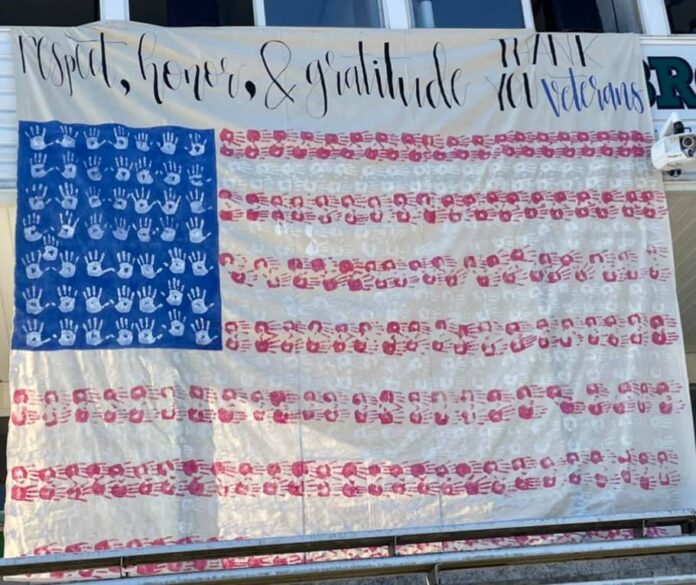 respect, honor, & gratitude
THANK
YOU veterans